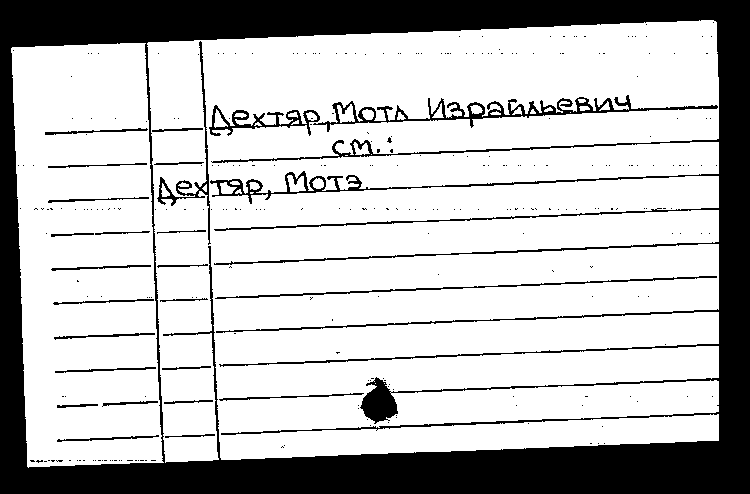 Дехтяр, Мотл Израильевич
см.:
Дехтяр, Мотэ